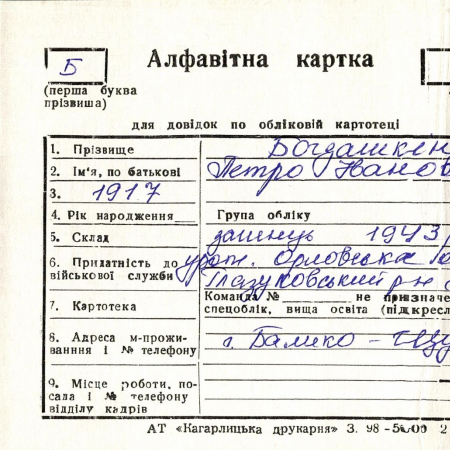 Б
Алфавітна картка
(перша буква
прізвища)
для довідок по обліковій картотеці
1. Прізвище Богдашкен
2. Ім'я, по батькові Петро Іванов
3. 1917
4. Рік народження Група обліку
5. Склад загинець 1943 р
6. Придатність до урож. Орловська
військової служби Глазуковський р-н
Команда № не призначе
7. Картотека спецоблік, вища освіта (підкресл
8. Адреса м-прожи-
вання і № телефону с. Балико -
9. Місце роботи, по-
сада і № телефону
відділу кадрів
АТ «Кагарлицька друкарня» З. 98 - 5000 2